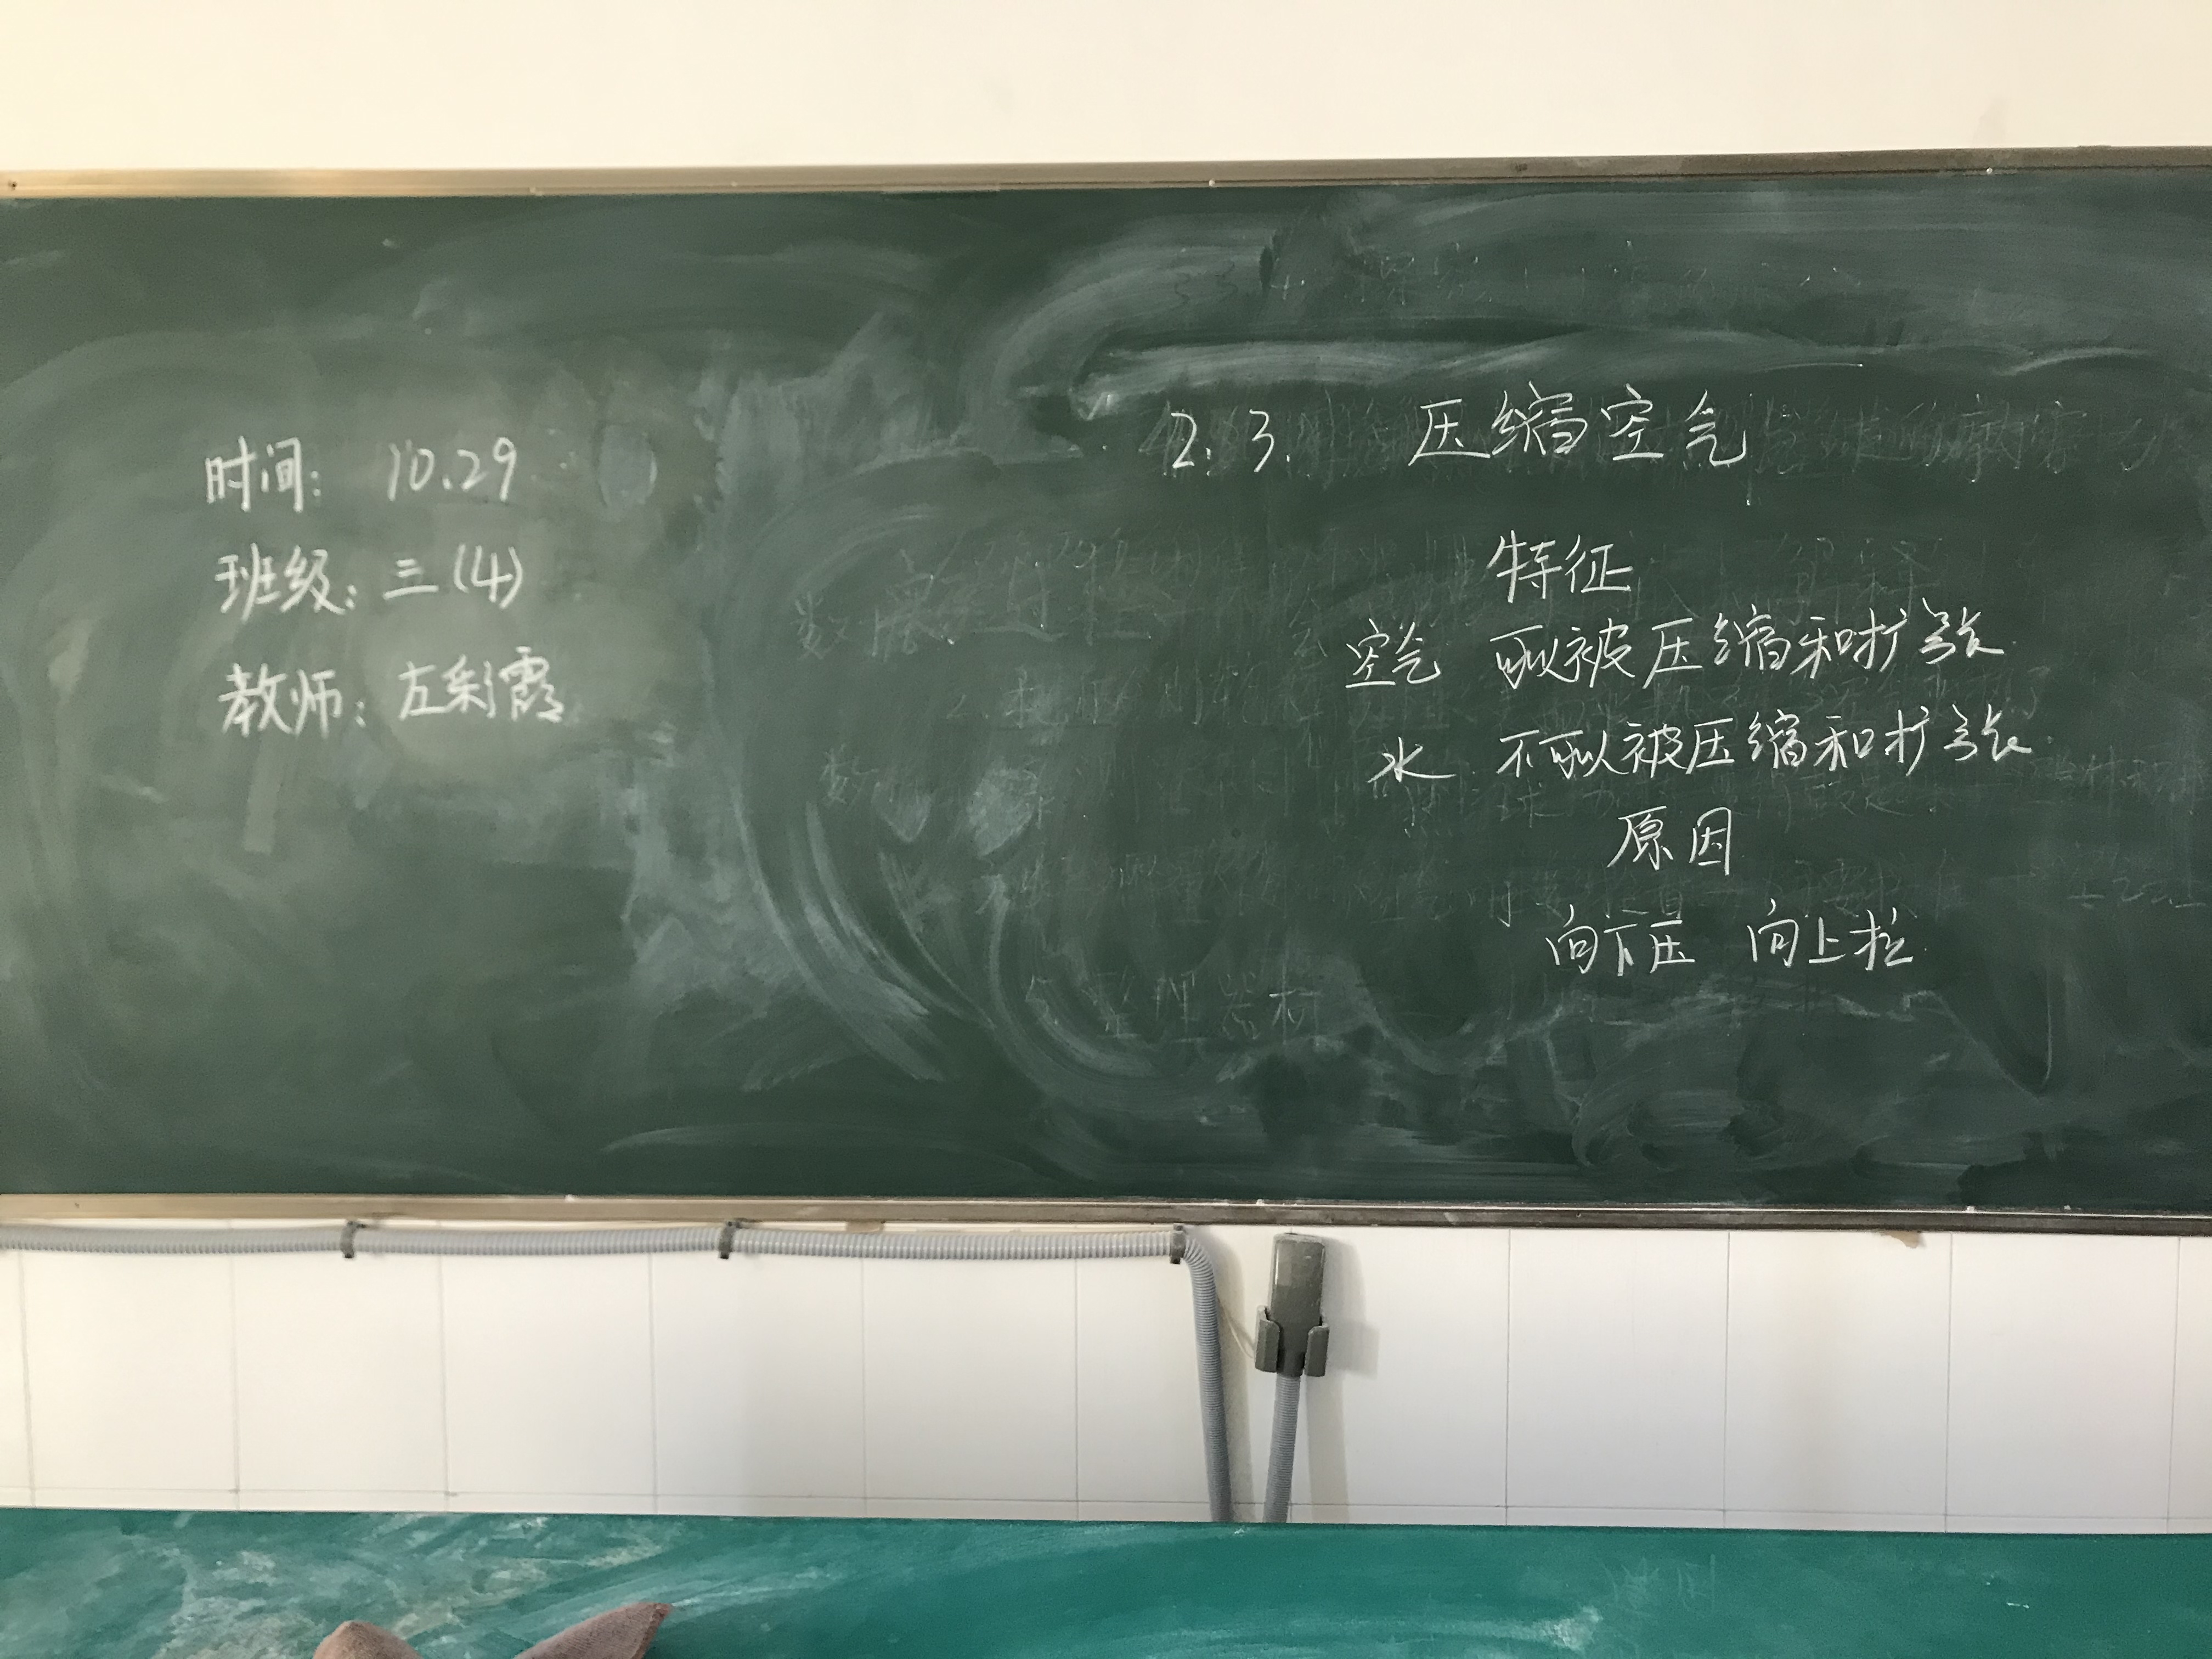 时间: 10.29
班级: 三(4)
教师: 左彩霞
2.3. 压缩空气
特征
空气 可以被压缩和扩张
水 不可以被压缩和扩张
原因
向下压 向上拉
整理器材